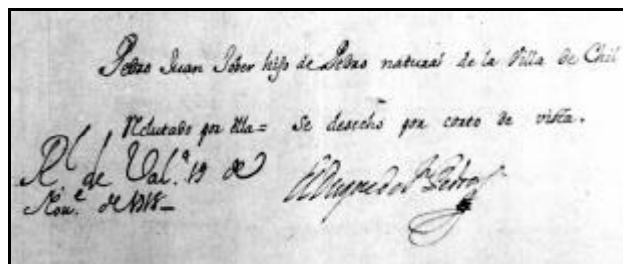 Pedro Juan Sober hijo de Pedro natural de la Villa de Chil
Reclutado por ella = Se desechó por corto de vista.
Rl. de Val.ª 19 de
Nov.e de 1818_